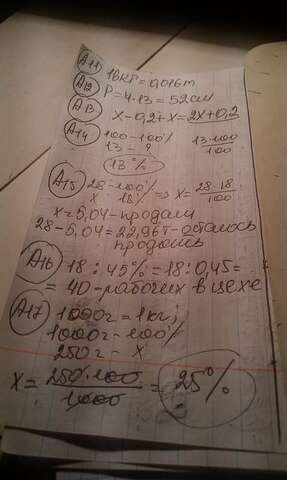 A11 16кг = 0,016т
A12 P = 4·13 = 52см
A13 x - 0,2 + x = 2x + 0,2
A14 100 - 100%
13 - ?
13·100/100
13%
A15 28 - 100%
x 18% => x = 28·18/100
x = 5,04 - продали
28 - 5,04 = 22,96т - осталось
продать
A16 18 : 45% = 18 : 0,45 =
= 40 - рабочих в цехе
A17 1000г = 1кг;
1000г - 100%
250г - x
x = 250·100/1000 = 25%